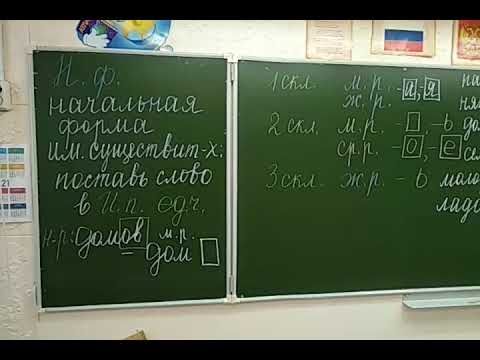 Н.ф.
начальная
форма
им.существит-х:
поставь слово
в И.п. ед.ч.
н-р: домов м.р.
– дом
1 скл. м.р. -а, я
ж.р.
2 скл. м.р. - , -ь
ср.р. -о, -е
3 скл. ж.р. - ь
21